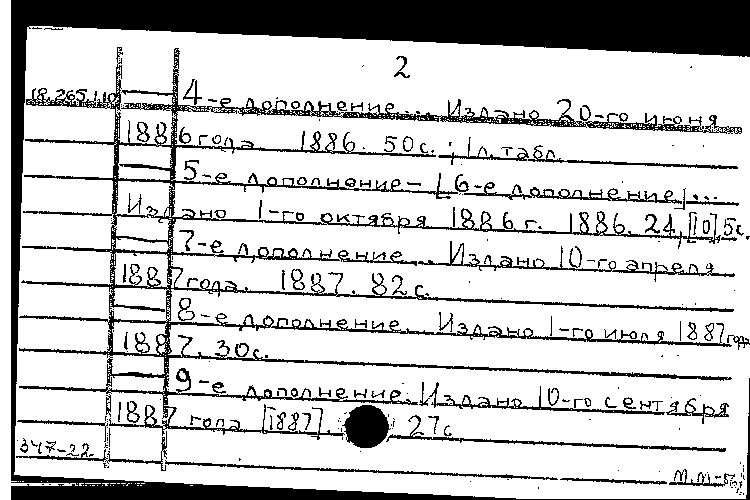 2
18.265.1.10 — 4-е дополнение... Издано 20-го июня
1886 года 1886. 50с. ; 1л. табл.
— 5-е дополнение – [6-е дополнение] ...
Издано 1-го октября 1886 г. 1886. 24, [10], 5с.
— 7-е дополнение... Издано 10-го апреля
1887 года. 1887. 82с.
— 8-е дополнение... Издано 1-го июля 1887 года
1887. 30с.
— 9-е дополнение. Издано 10-го сентября
1887 года [1887]. 27с.
347-22